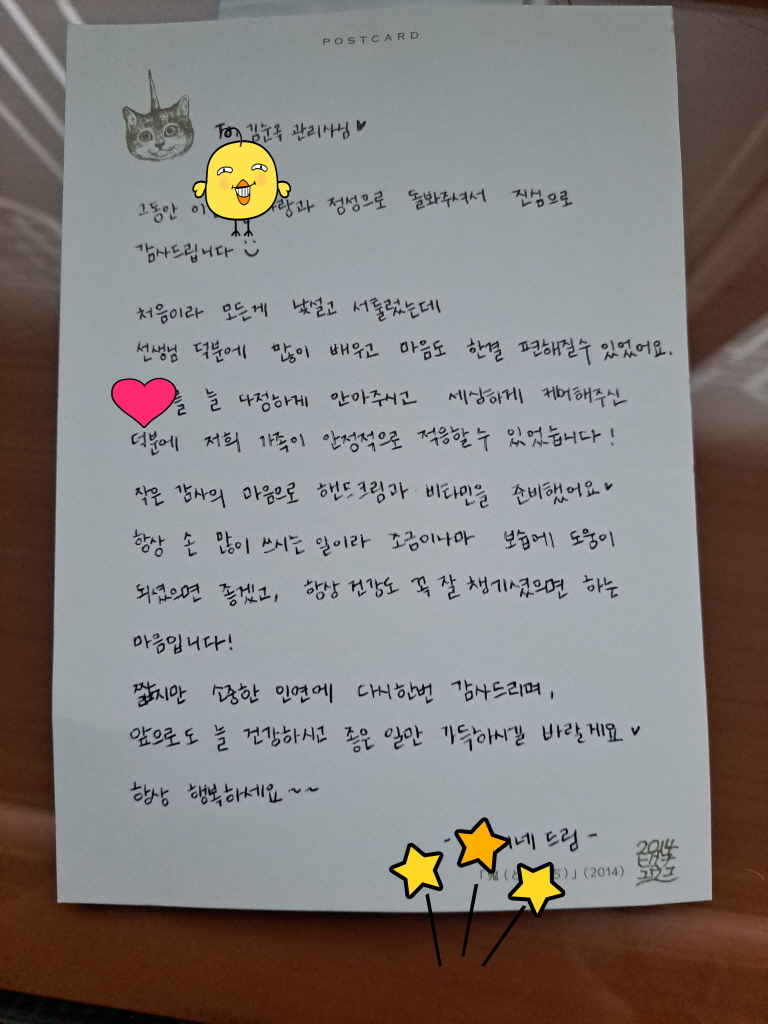 POSTCARD
To. 김순옥 관리사님♥
그동안 사랑과 정성으로 돌봐주셔서 진심으로
감사드립니다 :)
처음이라 모든게 낯설고 서툴렀는데
선생님 덕분에 많이 배우고 마음도 한결 편해질수 있었어요.
를 늘 다정하게 안아주시고 세심하게 케어해주신
덕분에 저희 가족이 안정적으로 적응할 수 있었습니다!
작은 감사의 마음으로 핸드크림과 비타민을 준비했어요♥
항상 손 많이 쓰시는 일이라 조금이나마 보습에 도움이
되셨으면 좋겠고, 항상 건강도 꼭 잘 챙기셨으면 하는
마음입니다!
짧지만 소중한 인연에 다시한번 감사드리며,
앞으로도 늘 건강하시고 좋은 일만 가득하시길 바랄게요♥
항상 행복하세요~~
- 네 드림 -
(2014)
2014